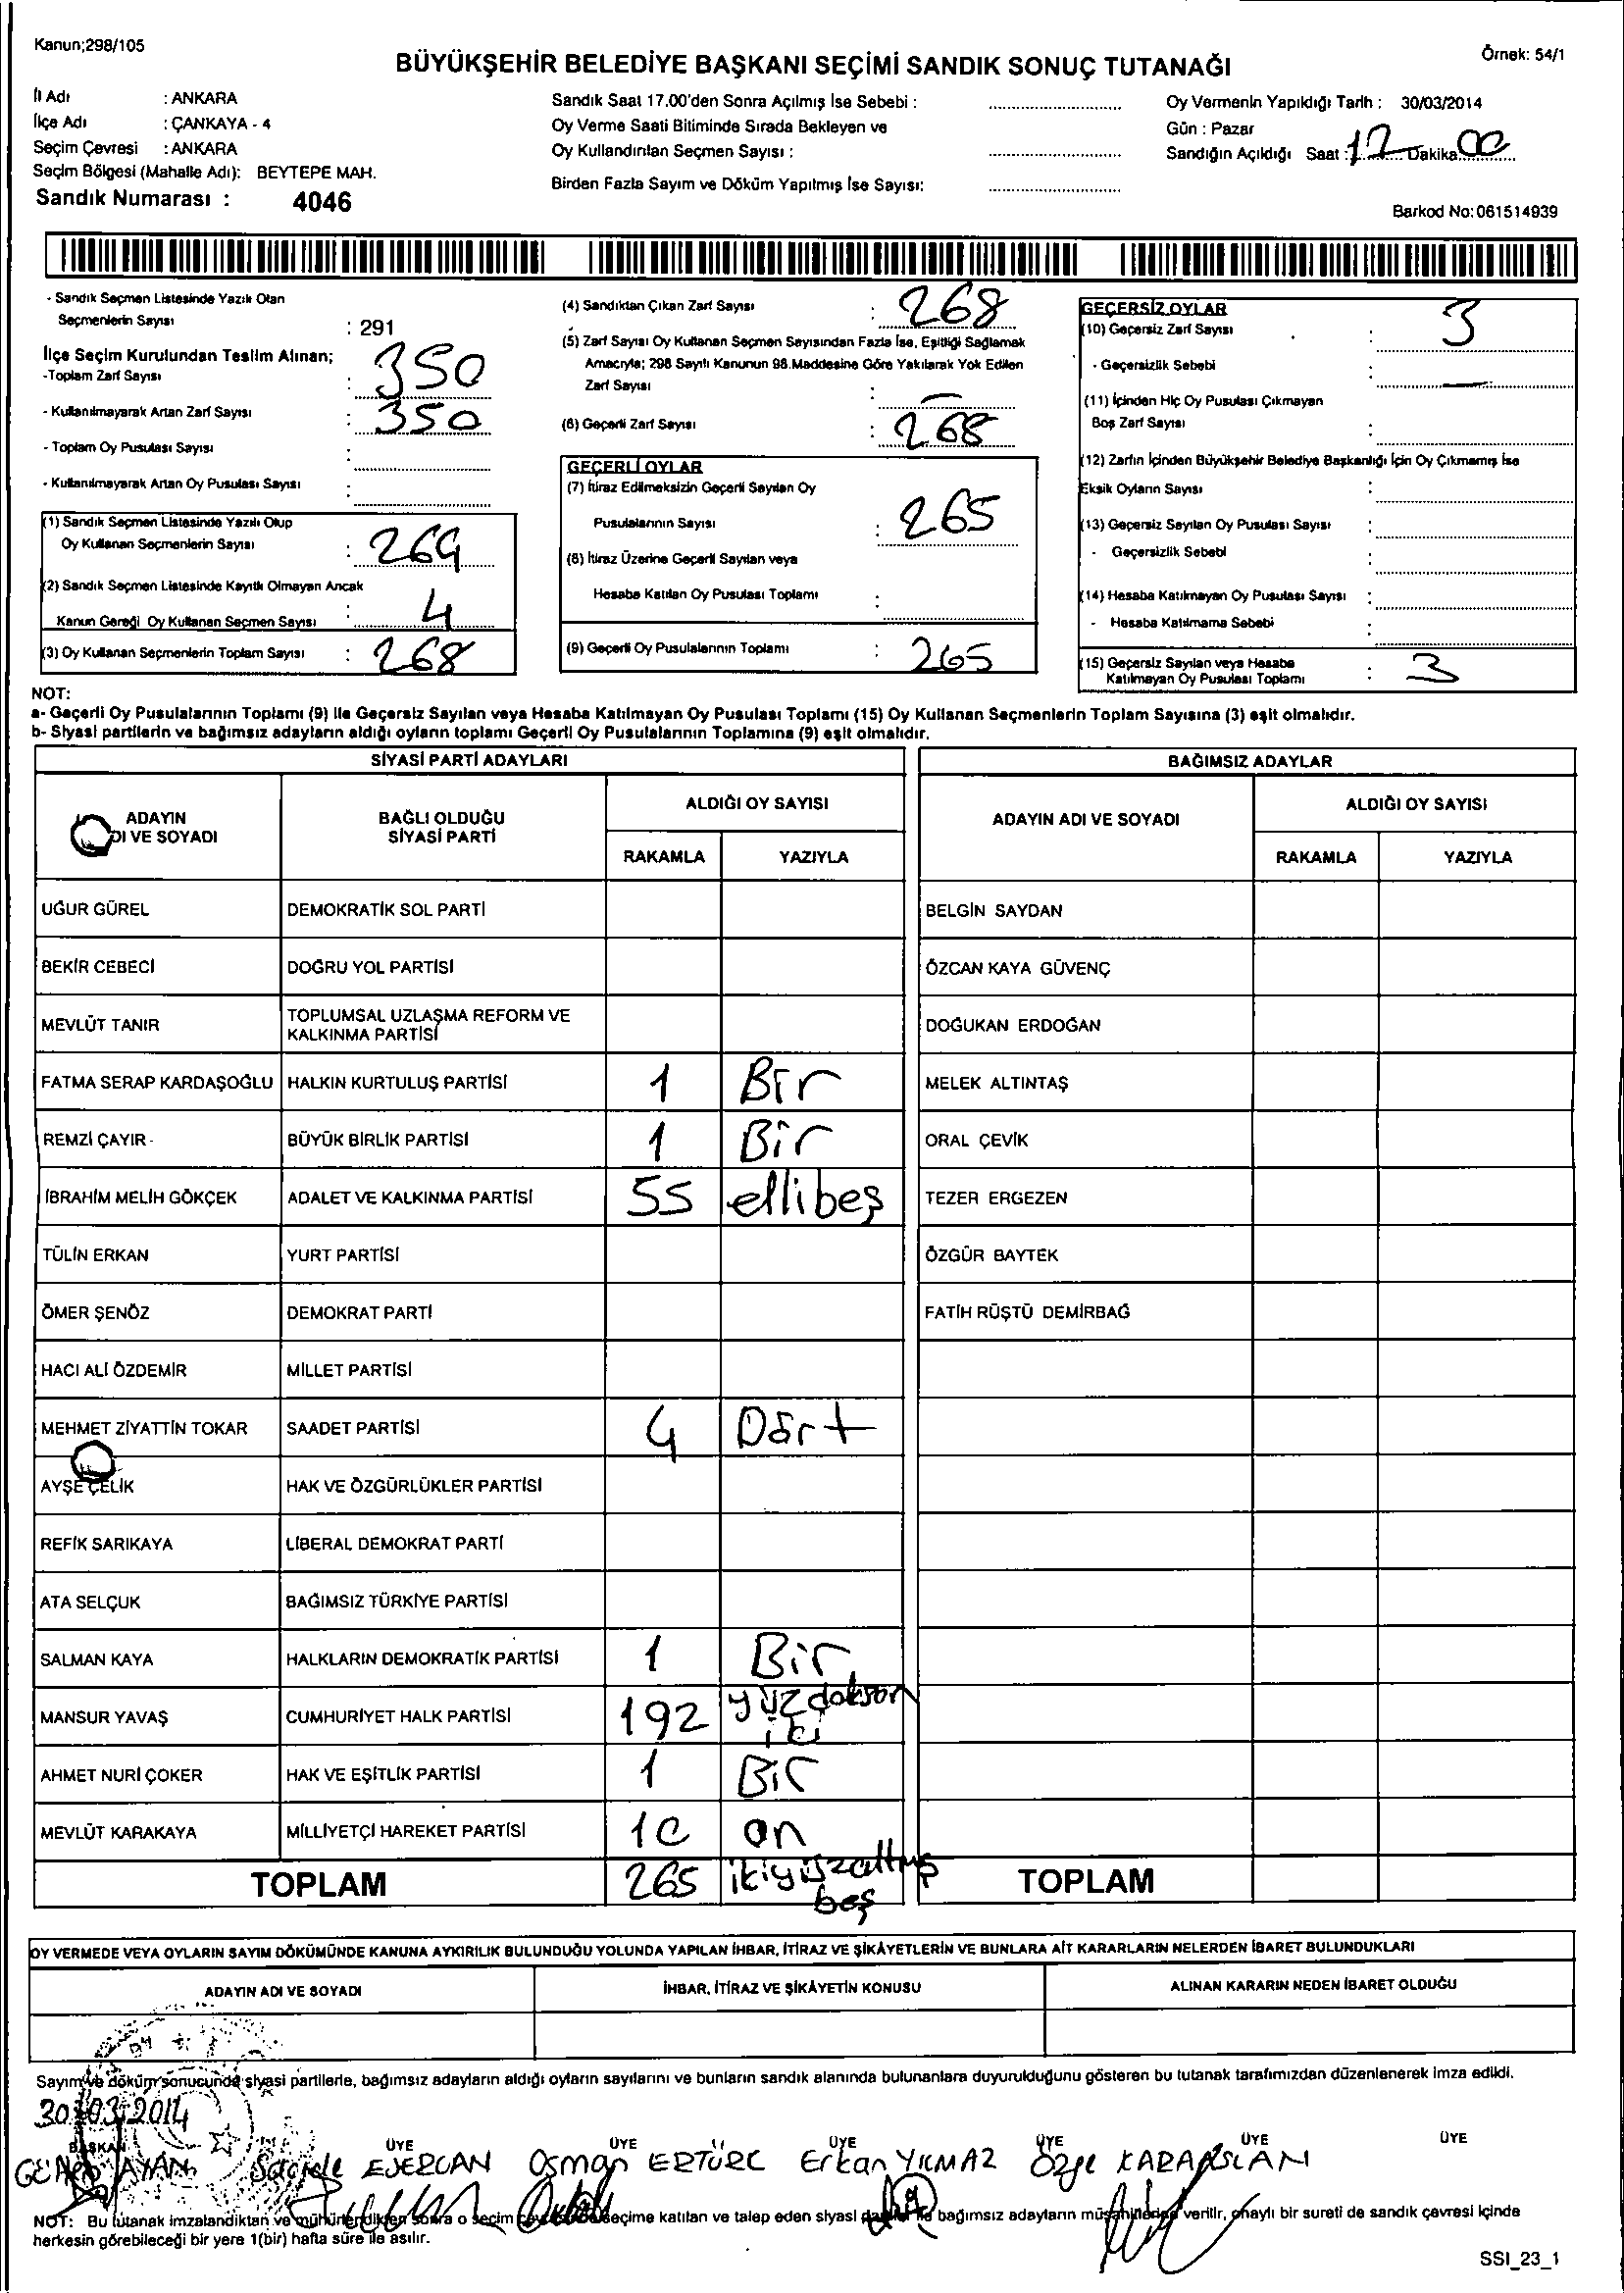 Kanun;298/105
Örnek: 54/1
BÜYÜKŞEHİR BELEDİYE BAŞKANI SEÇİMİ SANDIK SONUÇ TUTANAĞI
İl Adı : ANKARA
İlçe Adı : ÇANKAYA - 4
Seçim Çevresi : ANKARA
Seçim Bölgesi (Mahalle Adı): BEYTEPE MAH.
Sandık Numarası : 4046
Sandık Saat 17.00'den Sonra Açılmış İse Sebebi :
Oy Verme Saati Bitiminde Sırada Bekleyen ve
Oy Kullandırılan Seçmen Sayısı :
Birden Fazla Sayım ve Döküm Yapılmış İse Sayısı:
Oy Vermenin Yapıldığı Tarih : 30/03/2014
Gün : Pazar
Sandığın Açıldığı Saat : 17 Dakika 00
Barkod No:061514939
- Sandık Seçmen Listesinde Yazılı Olan
Seçmenlerin Sayısı : 291
İlçe Seçim Kurulundan Teslim Alınan;
-Toplam Zarf Sayısı : 350
- Kullanılmayarak Artan Zarf Sayısı : 350
- Toplam Oy Pusulası Sayısı :
- Kullanılmayarak Artan Oy Pusulası Sayısı :
(1) Sandık Seçmen Listesinde Yazılı Olup
Oy Kullanan Seçmenlerin Sayısı : 264
(2) Sandık Seçmen Listesinde Kayıtlı Olmayan Ancak
Kanun Gereği Oy Kullanan Seçmen Sayısı : 4
(3) Oy Kullanan Seçmenlerin Toplam Sayısı : 268
(4) Sandıktan Çıkan Zarf Sayısı : 268
(5) Zarf Sayısı Oy Kullanan Seçmen Sayısından Fazla İse, Eşitliği Sağlamak
Amacıyla; 298 Sayılı Kanunun 98.Maddesine Göre Yakılarak Yok Edilen
Zarf Sayısı : —
(6) Geçerli Zarf Sayısı : 268
GEÇERLİ OYLAR
(7) İtiraz Edilmeksizin Geçerli Sayılan Oy
Pusulalarının Sayısı : 265
(8) İtiraz Üzerine Geçerli Sayılan veya
Hesaba Katılan Oy Pusulası Toplamı :
(9) Geçerli Oy Pusulalarının Toplamı : 265
GEÇERSİZ OYLAR
(10) Geçersiz Zarf Sayısı : 3
- Geçersizlik Sebebi : —
(11) İçinden Hiç Oy Pusulası Çıkmayan
Boş Zarf Sayısı :
(12) Zarfın İçinden Büyükşehir Belediye Başkanlığı İçin Oy Çıkmamış İse
Eksik Oyların Sayısı :
(13) Geçersiz Sayılan Oy Pusulası Sayısı :
- Geçersizlik Sebebi :
(14) Hesaba Katılmayan Oy Pusulası Sayısı :
- Hesaba Katılmama Sebebi :
(15) Geçersiz Sayılan veya Hesaba
Katılmayan Oy Pusulası Toplamı : 3
NOT:
a- Geçerli Oy Pusulalarının Toplamı (9) ile Geçersiz Sayılan veya Hesaba Katılmayan Oy Pusulası Toplamı (15) Oy Kullanan Seçmenlerin Toplam Sayısına (3) eşit olmalıdır.
b- Siyasi partilerin ve bağımsız adayların aldığı oyların toplamı Geçerli Oy Pusulalarının Toplamına (9) eşit olmalıdır.
SİYASİ PARTİ ADAYLARI
BAĞIMSIZ ADAYLAR
ADAYIN DI VE SOYADI
BAĞLI OLDUĞU SİYASİ PARTİ
ALDIĞI OY SAYISI
RAKAMLA YAZIYLA
ADAYIN ADI VE SOYADI
ALDIĞI OY SAYISI
RAKAMLA YAZIYLA
UĞUR GÜREL DEMOKRATİK SOL PARTİ BELGİN SAYDAN
BEKİR CEBECİ DOĞRU YOL PARTİSİ ÖZCAN KAYA GÜVENÇ
MEVLÜT TANIR TOPLUMSAL UZLAŞMA REFORM VE KALKINMA PARTİSİ DOĞUKAN ERDOĞAN
FATMA SERAP KARDAŞOĞLU HALKIN KURTULUŞ PARTİSİ 1 Bir MELEK ALTINTAŞ
REMZİ ÇAYIR HALKIN BÜYÜK BİRLİK PARTİSİ 1 Bir ORAL ÇEVİK
İBRAHİM MELİH GÖKÇEK ADALET VE KALKINMA PARTİSİ 55 ellibeş TEZER ERGEZEN
TÜLİN ERKAN YURT PARTİSİ ÖZGÜR BAYTEK
ÖMER ŞENÖZ DEMOKRAT PARTİ FATİH RÜŞTÜ DEMİRBAĞ
HACI ALİ ÖZDEMİR MİLLET PARTİSİ
MEHMET ZİYATTİN TOKAR SAADET PARTİSİ 4 Dört
AYŞE ÇELİK HAK VE ÖZGÜRLÜKLER PARTİSİ
REFİK SARIKAYA LİBERAL DEMOKRAT PARTİ
ATA SELÇUK BAĞIMSIZ TÜRKİYE PARTİSİ
SALMAN KAYA HALKLARIN DEMOKRATİK PARTİSİ 1 Bir
MANSUR YAVAŞ CUMHURİYET HALK PARTİSİ 192 yüzdoksan iki
AHMET NURİ ÇOKER HAK VE EŞİTLİK PARTİSİ 1 Bir
MEVLÜT KARAKAYA MİLLİYETÇİ HAREKET PARTİSİ 10 on
TOPLAM 265 ikiyüzaltmış beş TOPLAM
OY VERMEDE VEYA OYLARIN SAYIM DÖKÜMÜNDE KANUNA AYKIRILIK BULUNDUĞU YOLUNDA YAPILAN İHBAR, İTİRAZ VE ŞİKÂYETLERİN VE BUNLARA AİT KARARLARIN NELERDEN İBARET BULUNDUKLARI
ADAYIN ADI VE SOYADI İHBAR, İTİRAZ VE ŞİKÂYETİN KONUSU ALINAN KARARIN NEDEN İBARET OLDUĞU
Sayım ve döküm sonucunda siyasi partilerle, bağımsız adayların aldığı oyların sayılarını ve bunların sandık alanında bulunanlara duyurulduğunu gösteren bu tutanak tarafımızdan düzenlenerek imza edildi.
30.03.2014
BAŞKAN ÜYE ÜYE ÜYE ÜYE ÜYE ÜYE
AYAN EJERCAN Osman ERTÜRC Erkan YILMAZ Özge KARAASLAN
NOT: Bu tutanak imzalandıktan ve mühürlendikten sonra o seçim seçime katılan ve talep eden siyasi bağımsız adayların müşahitlerine verilir, onaylı bir sureti de sandık çevresi içinde
herkesin görebileceği bir yere 1(bir) hafta süre ile asılır.
SSI_23_1